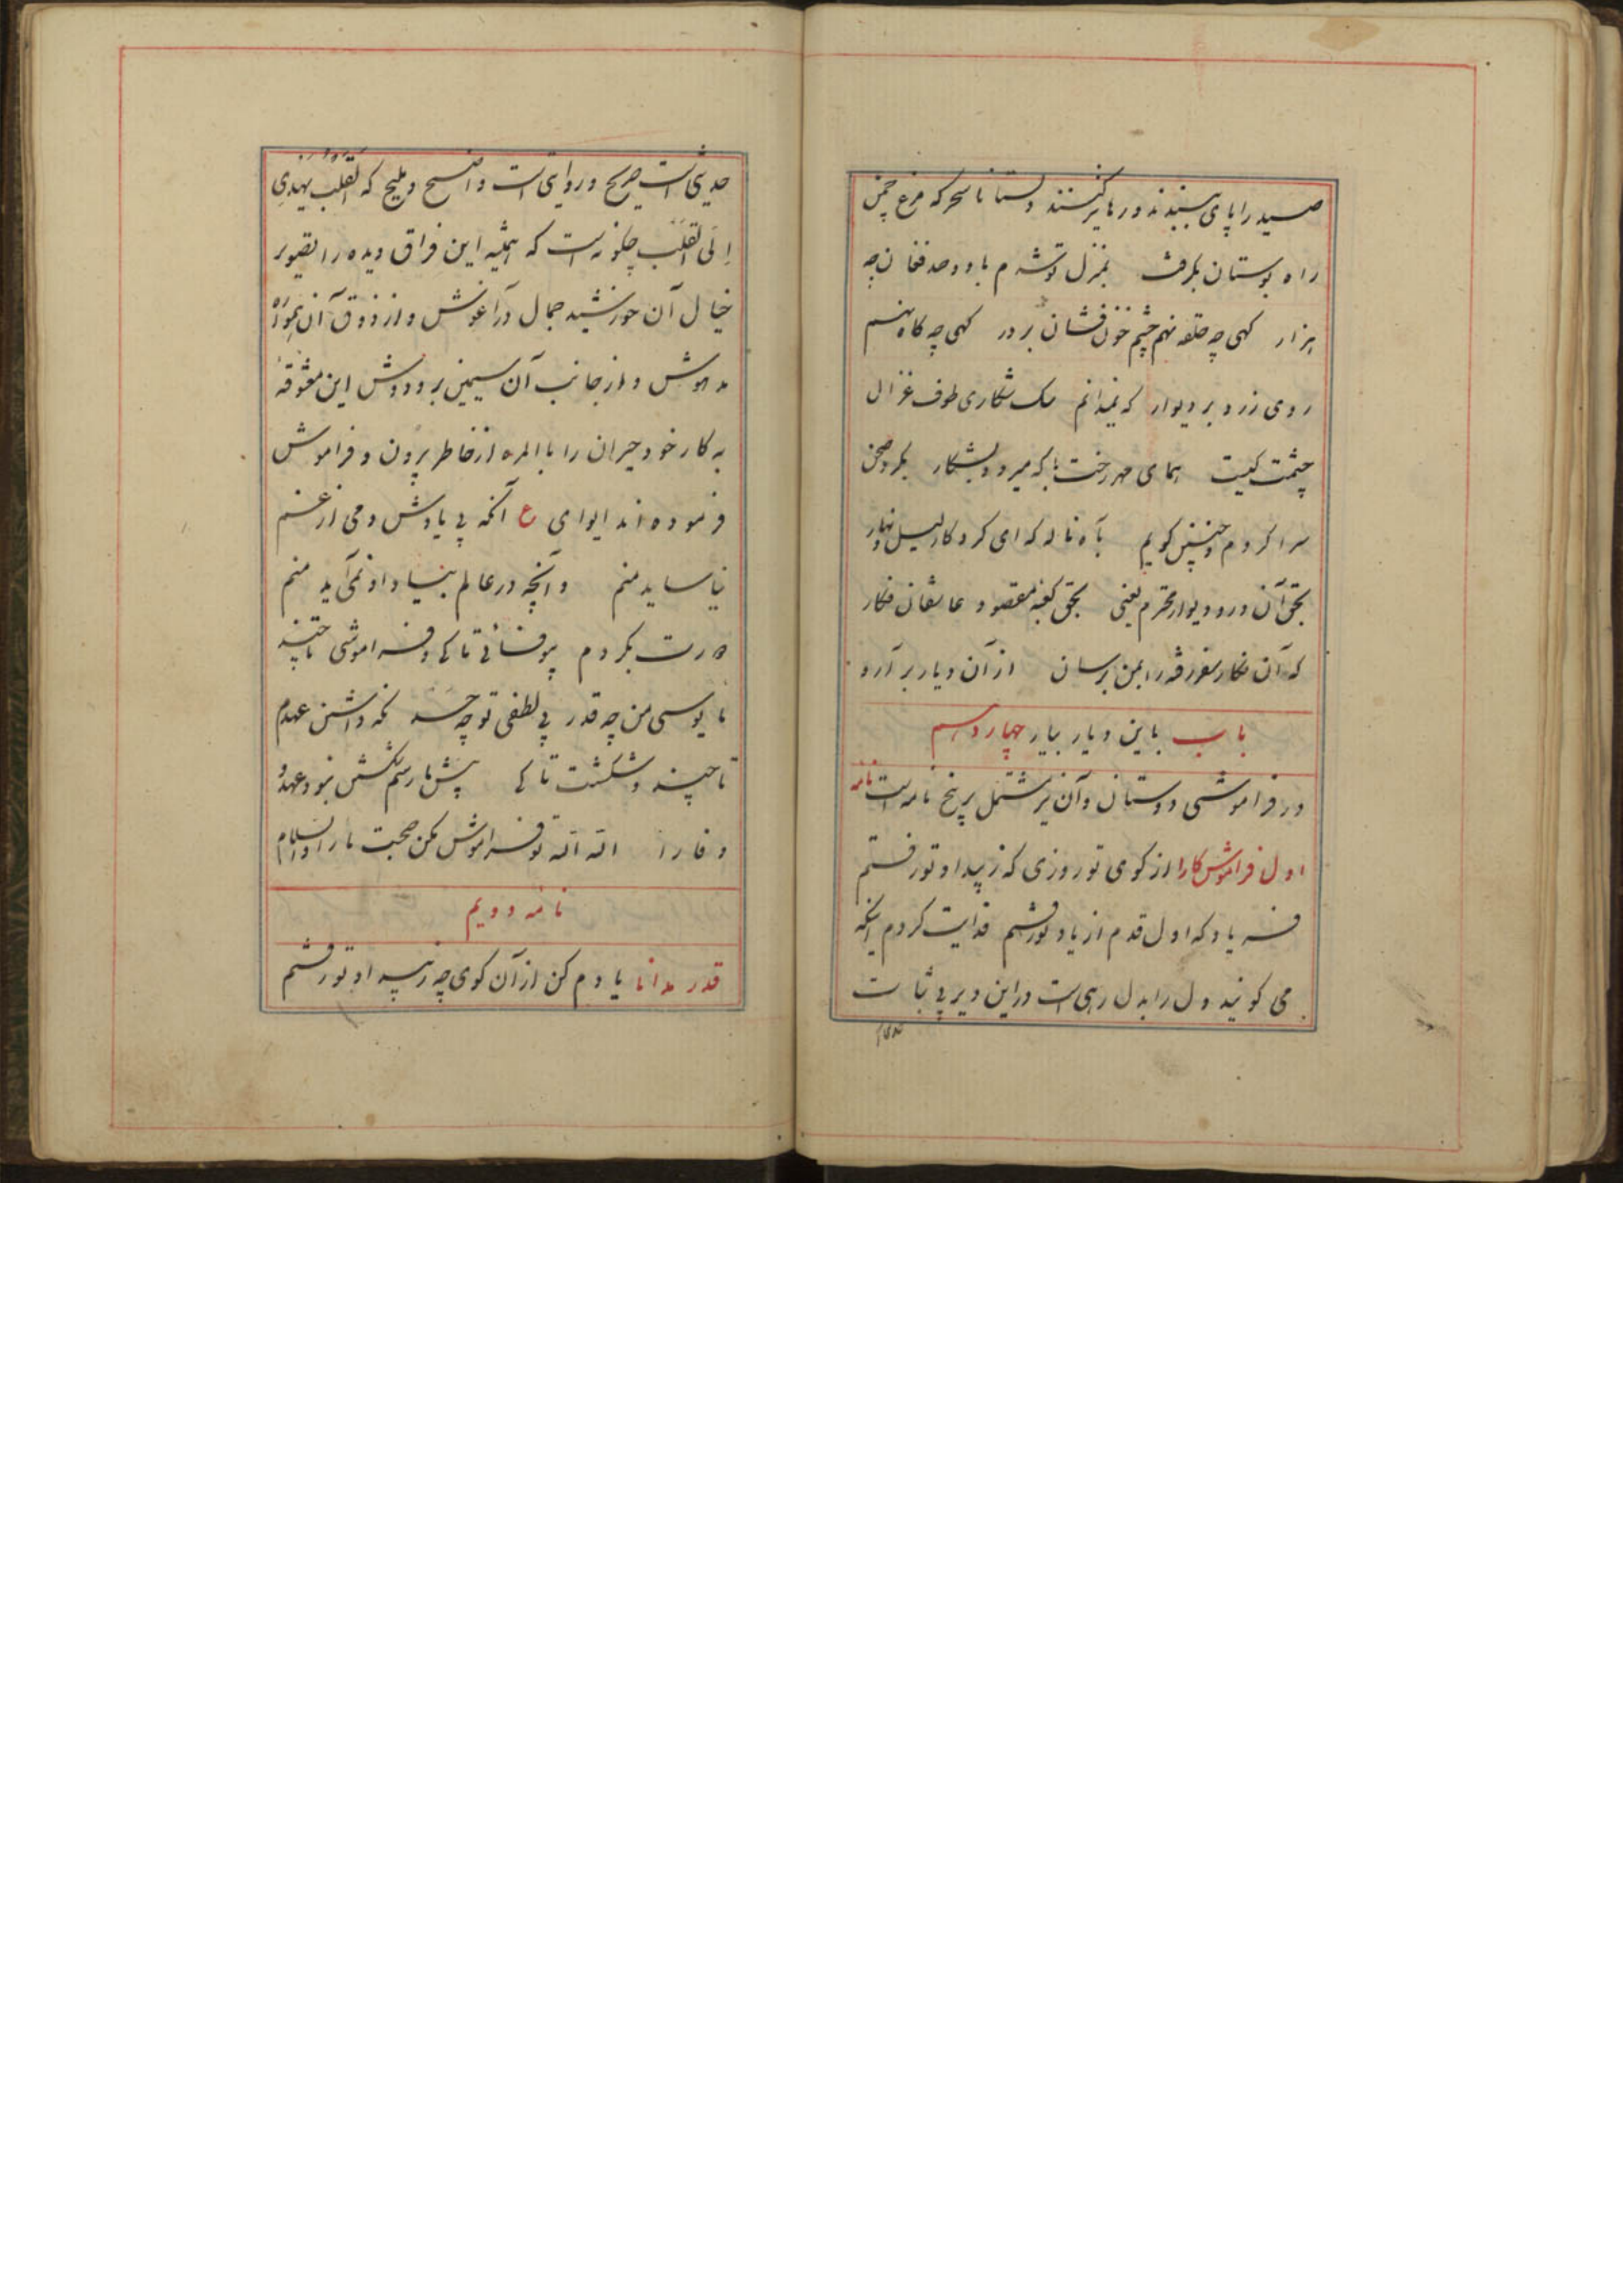 صید را پای ببندند و رها نیز کنند دلستانا سحر که مرغ چمن
راه بوستان بگرفت بمنزل تو شدم با دو صد فغان چه
هزار کهی چه حلقه نهم چشم خون فشان بر در کهی چه کاه نهم
روی زرد بر دیوار که نمیدانم سک شکاری طوف غزال
چشمت کیست همای مهر رخت با که میرود بشکار بکرد صحن
سرا کردم و چنین کویم بآه ناله که ای کردکار لیل و نهار
بحق آن در و دیوار محترم یعنی بحق کعبه مقصود عاشقان فکار
که آن نکار سفر رفته را بمن برسان از آن دیار بر آرد
باب باین دیار بیار چهاردهم
در فراموشی دوستان و آن نیز مشتمل بر پنج نامه است نامه
اول فراموش کارا از کوی تو روزی که ز بیداد تو رفتم
فریاد که اول قدم از یاد تو رفتم فدایت کردم اینکه
می کویند دل را بدل رهی است در این دیر بی ثبات
حدیثی است صریح و روایتی است واضح و ملیح که القلب یهدی
الی القلب چکونه است که همیشه این فراق دیده را تصویر
خیال آن خورشید جمال در آغوش و از ذوق آن همواره
مدهوش و از جانب آن سیمین بر و دوش این معشوقه
به کار خود حیران را بالمره از خاطر بیرون و فراموش
فرموده اند ایوای ع آنکه بی یادش دمی از غم
نیاساید منم و آنچه در عالم بنیاد او نمی آید منم
بکردم بیوفائی تا کی و فراموشی تا چند
مایوسی من چه قدر بی لطفی تو چه نکه داشتن عهدم
تا چند و شکست تا کی پیش ما رسم شکستن نبود عهد و
وفا را الله الله تو فراموش مکن صحبت ما را والسلام
نامه دویم
قدر مدانا یادم کن از آن کوی چه ز بیداد تو رفتم